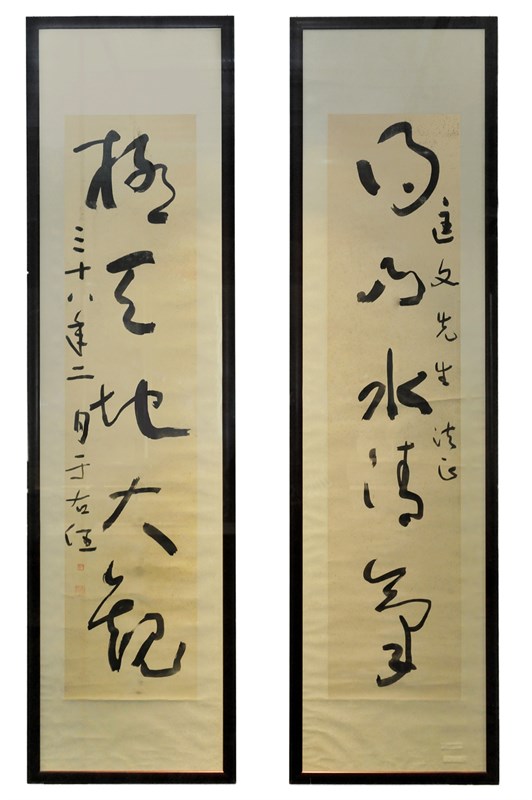 匡文先生 法正
得山水清氣
極天地大觀
三十八年二月于右任